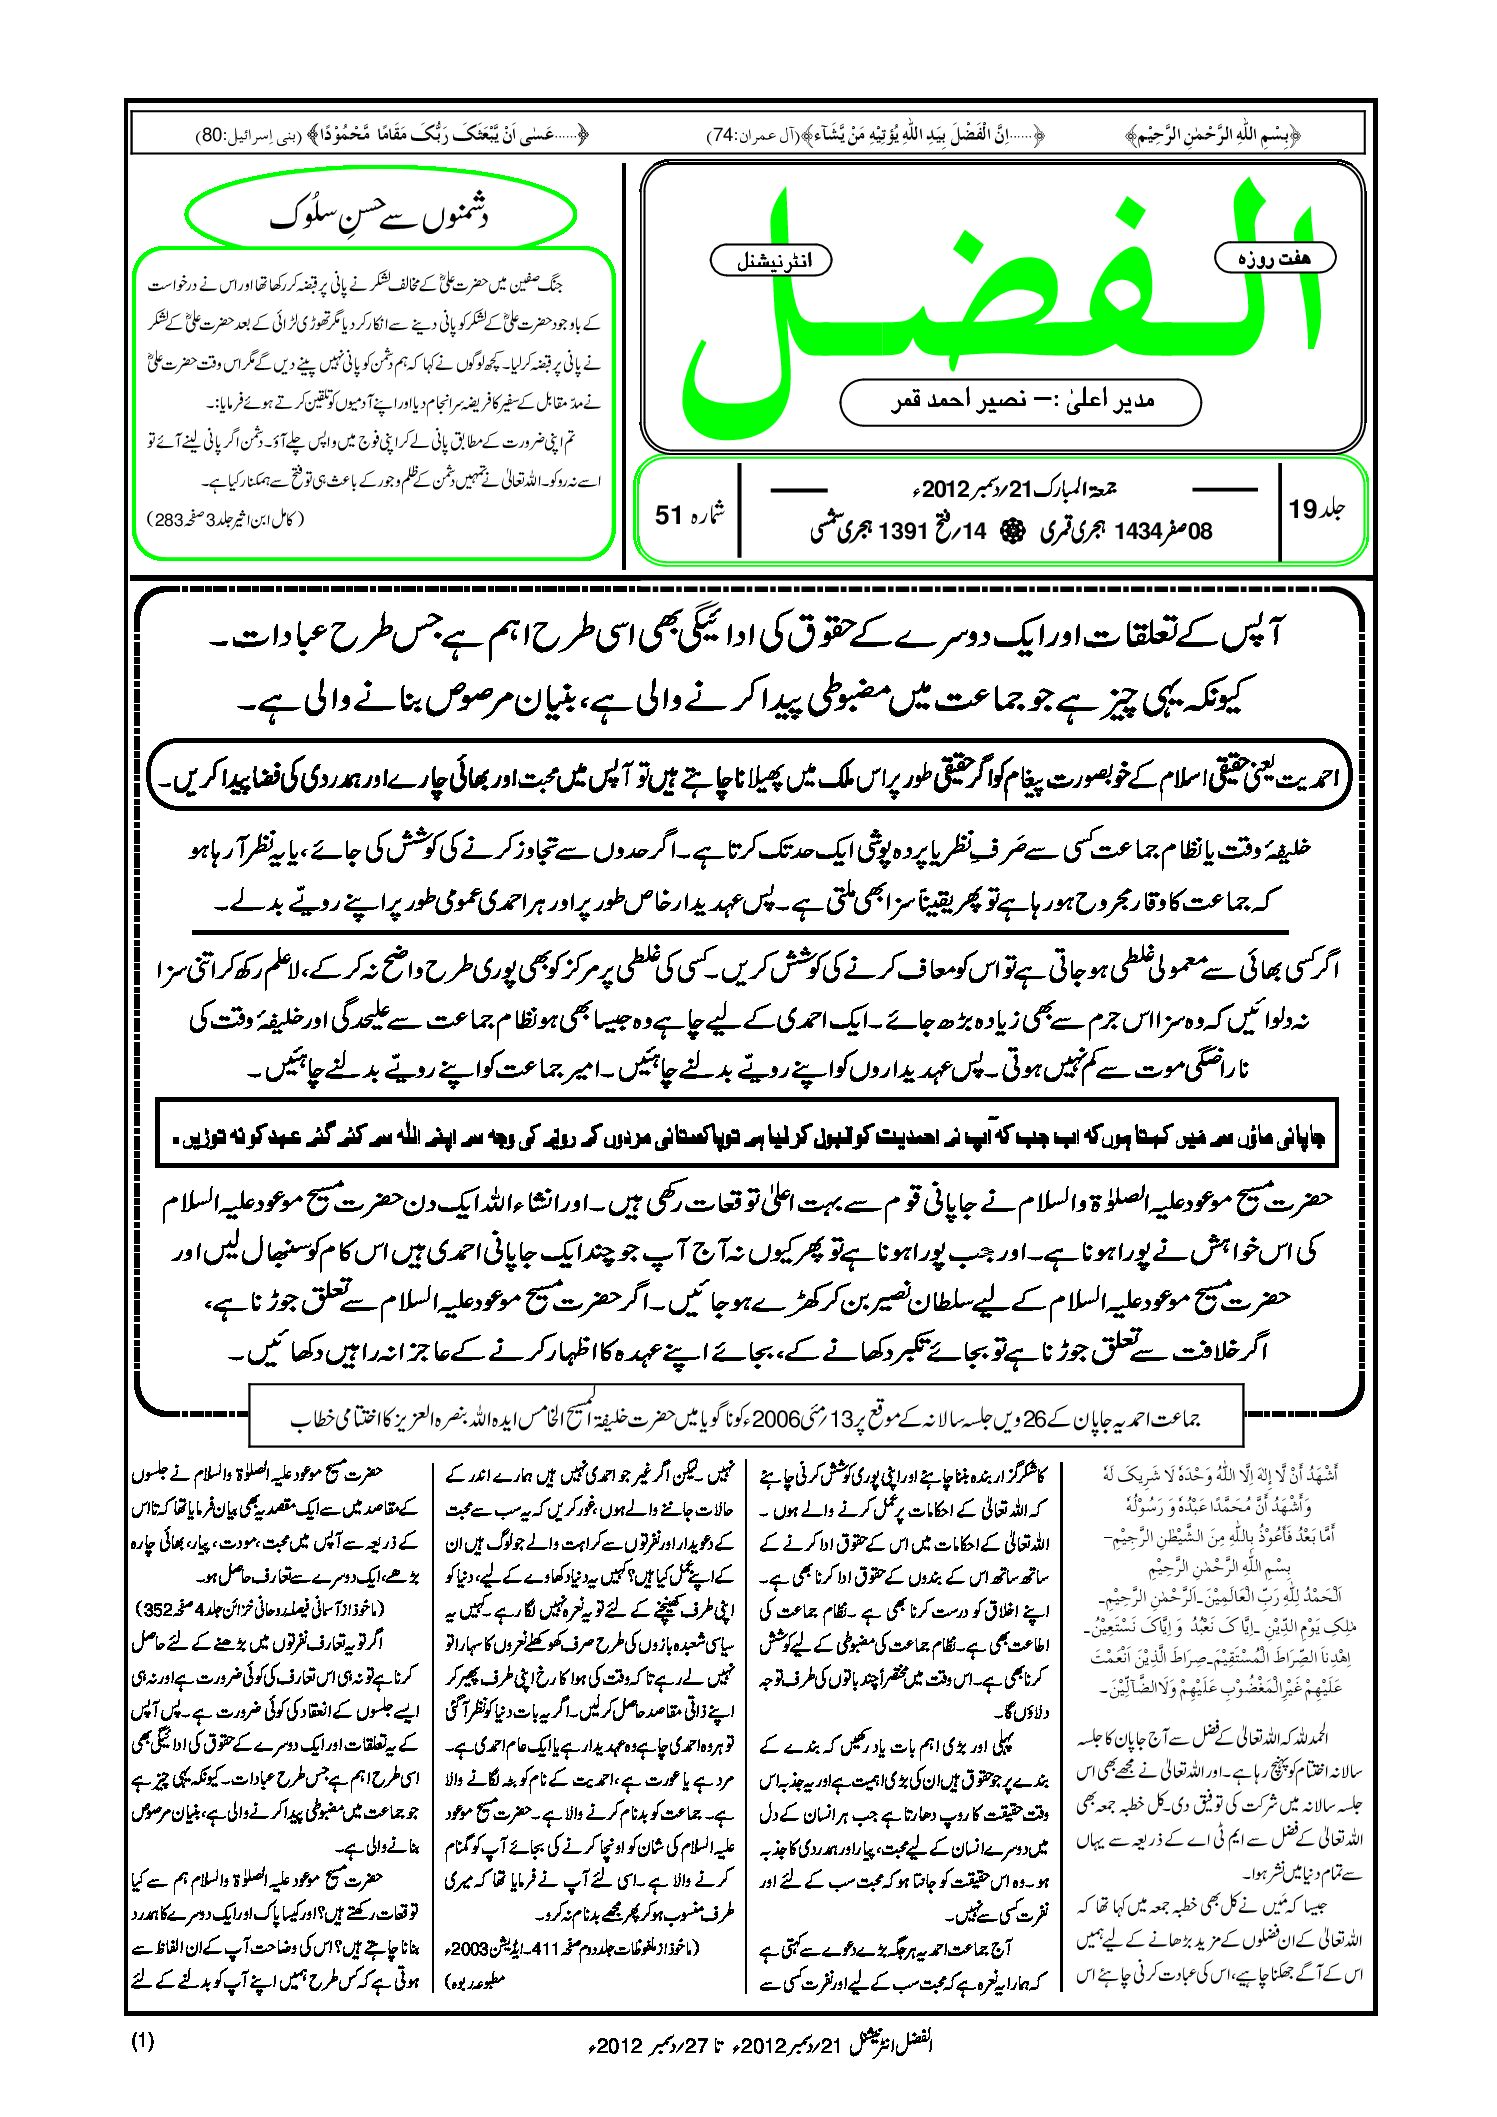 ﴿بِسْمِ اللّٰہِ الرَّحْمٰنِ الرَّحِیْمِ﴾
﴿......اِنَّ الْفَضْلَ بِیَدِ اللّٰہِ یُؤْتِیْہِ مَنْ یَّشَآء﴾(آل عمران:74)
﴿......عَسٰی اَنْ یَّبْعَثَکَ رَبُّکَ مَقَامًا مَّحْمُوْدًا﴾ (بنی اِسرائیل:80)
الفضل
ہفت روزہ
انٹرنیشنل
مدیر اعلیٰ :– نصیر احمد قمر
جلد 19
جمعۃ المبارک 21؍دسمبر 2012ء
08 صفر 1434 ہجری قمری ۞ 14؍فتح 1391 ہجری شمسی
شمارہ 51
دشمنوں سے حسنِ سلُوک
جنگ صفین میں حضرت علیؓ کے مخالف لشکر نے پانی پر قبضہ کر رکھا تھا اور اس نے درخواست
کے باوجود حضرت علیؓ کے لشکر کو پانی دینے سے انکار کر دیا مگر تھوڑی لڑائی کے بعد حضرت علیؓ کے لشکر
نے پانی پر قبضہ کر لیا۔ کچھ لوگوں نے کہا کہ ہم دشمن کو پانی نہیں پینے دیں گے مگر اس وقت حضرت علیؓ
نے مدّ مقابل کے سفیر کا فریضہ سرانجام دیا اور اپنے آدمیوں کو تلقین کرتے ہوئے فرمایا:۔
تم اپنی ضرورت کے مطابق پانی لے کر اپنی فوج میں واپس چلے آؤ۔ دشمن اگر پانی لینے آئے تو
اسے نہ روکو۔ اللہ تعالیٰ نے تمہیں دشمن کے ظلم و جور کے باعث ہی تو فتح سے ہمکنار کیا ہے۔
(کامل ابن اثیر جلد 3 صفحہ 283)
آپس کے تعلقات اور ایک دوسرے کے حقوق کی ادائیگی بھی اسی طرح اہم ہے جس طرح عبادات۔
کیونکہ یہی چیز ہے جو جماعت میں مضبوطی پیدا کرنے والی ہے، بنیان مرصوص بنانے والی ہے۔
احمدیت یعنی حقیقی اسلام کے خوبصورت پیغام کو اگر حقیقی طور پر اس ملک میں پھیلانا چاہتے ہیں تو آپس میں محبت اور بھائی چارے اور ہمدردی کی فضا پیدا کریں۔
خلیفۂ وقت یا نظام جماعت کسی سے صَرفِ نظر یا پردہ پوشی ایک حد تک کرتا ہے۔ اگر حدوں سے تجاوز کرنے کی کوشش کی جائے، یا یہ نظر آرہا ہو
کہ جماعت کا وقار مجروح ہو رہا ہے تو پھر یقیناً سزا بھی ملتی ہے۔ پس عہدیدار خاص طور پر اور ہر احمدی عمومی طور پر اپنے رویّے بدلے۔
اگر کسی بھائی سے معمولی غلطی ہو جاتی ہے تو اس کو معاف کرنے کی کوشش کریں۔ کسی کی غلطی پر مرکز کو بھی پوری طرح واضح نہ کر کے، لاعلم رکھ کر اتنی سزا
نہ دلوائیں کہ وہ سزا اس جرم سے بھی زیادہ بڑھ جائے۔ ایک احمدی کے لیے چاہے وہ جیسا بھی ہو نظام جماعت سے علیحدگی اور خلیفۂ وقت کی
ناراضگی موت سے کم نہیں ہوتی۔ پس عہدیداروں کو اپنے رویّے بدلنے چاہئیں۔ امیر جماعت کو اپنے رویّے بدلنے چاہئیں۔
جاپانی ماؤں سے مَیں کہتا ہوں کہ اب جب کہ آپ نے احمدیت کو قبول کر لیا ہے تو پاکستانی مردوں کے رویّے کی وجہ سے اپنے اللہ سے کئے گئے عہد کو نہ توڑیں۔
حضرت مسیح موعود علیہ الصلوٰۃ والسلام نے جاپانی قوم سے بہت اعلیٰ توقعات رکھی ہیں۔ اور انشاء اللہ ایک دن حضرت مسیح موعود علیہ السلام
کی اس خواہش نے پورا ہونا ہے۔ اور جب پورا ہونا ہے تو پھر کیوں نہ آج آپ جو چند ایک جاپانی احمدی ہیں اس کام کو سنبھال لیں اور
حضرت مسیح موعود علیہ السلام کے لیے سلطان نصیر بن کر کھڑے ہو جائیں۔ اگر حضرت مسیح موعود علیہ السلام سے تعلق جوڑنا ہے،
اگر خلافت سے تعلق جوڑنا ہے تو بجائے تکبر دکھانے کے، بجائے اپنے عہدہ کا اظہار کرنے کے عاجزانہ راہیں دکھائیں۔
جماعت احمدیہ جاپان کے 26ویں جلسہ سالانہ کے موقع پر 13؍مئی 2006ء کو ناگویا میں حضرت خلیفۃ المسیح الخامس ایدہ اللہ بنصرہ العزیز کا اختتامی خطاب
أَشْھَدُ أَنْ لَّا إِلٰہَ اِلَّا اللّٰہُ وَحْدَہٗ لَا شَرِیکَ لَہٗ
وَأَشْھَدُ أَنَّ مُحَمَّدًا عَبْدُہٗ وَ رَسُوْلُہٗ
أَمَّا بَعْدُ فَأَعُوْذُ بِاللّٰہِ مِنَ الشَّیْطٰنِ الرَّجِیْمِ–
بِسْمِ اللّٰہِ الرَّحْمٰنِ الرَّحِیْمِ
اَلْحَمْدُ لِلّٰہِ رَبِّ الْعَالَمِیْنَ۔اَلرَّحْمٰنِ الرَّحِیْمِ۔
مٰلِکِ یَوْمِ الدِّیْنِ۔اِیَّاکَ نَعْبُدُ وَ اِیَّاکَ نَسْتَعِیْنُ۔
اِھْدِنَا الصِّرَاطَ الْمُسْتَقِیْمَ۔صِرَاطَ الَّذِیْنَ اَنْعَمْتَ
عَلَیْھِمْ غَیْرِالْمَغْضُوْبِ عَلَیْھِمْ وَلَاالضَّآلِّیْنَ۔
الحمد للہ کہ اللہ تعالیٰ کے فضل سے آج جاپان کا جلسہ
سالانہ اختتام کو پہنچ رہا ہے۔ اور اللہ تعالیٰ نے مجھے بھی اس
جلسہ سالانہ میں شرکت کی توفیق دی۔ کل خطبہ جمعہ بھی
اللہ تعالیٰ کے فضل سے ایم ٹی اے کے ذریعہ سے یہاں
سے تمام دنیا میں نشر ہوا۔
جیسا کہ مَیں نے کل بھی خطبہ جمعہ میں کہا تھا کہ
اللہ تعالیٰ کے ان فضلوں کے مزید بڑھانے کے لیے ہمیں
اس کے آگے جھکنا چاہیے، اس کی عبادت کرنی چاہئے اس
کا شکر گزار بندہ بننا چاہئے اور اپنی پوری کوشش کرنی چاہئے
کہ اللہ تعالیٰ کے احکامات پر عمل کرنے والے ہوں۔
اللہ تعالیٰ کے احکامات میں اس کے حقوق ادا کرنے کے
ساتھ ساتھ اس کے بندوں کے حقوق ادا کرنا بھی ہے۔
اپنے اخلاق کو درست کرنا بھی ہے۔ نظام جماعت کی
اطاعت بھی ہے۔ نظام جماعت کی مضبوطی کے لیے کوشش
کرنا بھی ہے۔ اس وقت میں مختصراً چند باتوں کی طرف توجہ
دلاؤں گا۔
پہلی اور بڑی اہم بات یاد رکھیں کہ بندے کے
بندے پر جو حقوق ہیں ان کی بڑی اہمیت ہے اور یہ جذبہ اس
وقت حقیقت کا روپ دھارتا ہے جب ہر انسان کے دل
میں دوسرے انسان کے لیے محبت، پیار اور ہمدردی کا جذبہ
ہو۔ وہ اس حقیقت کو جانتا ہو کہ محبت سب کے لئے اور
نفرت کسی سے نہیں۔
آج جماعت احمدیہ ہر جگہ بڑے دعوے سے کہتی ہے
کہ ہمارا یہ نعرہ ہے کہ محبت سب کے لیے اور نفرت کسی سے
نہیں۔ لیکن اگر غیر جو احمدی نہیں ہیں ہمارے اندر کے
حالات جاننے والے ہوں، غور کریں کہ یہ سب سے محبت
کے دعویدار اور نفرتوں سے کراہت والے جو لوگ ہیں ان
کے اپنے عمل کیا ہیں؟ کہیں یہ دنیا دکھاوے کے لیے، دنیا کو
اپنی طرف کھینچنے کے لئے تو یہ نعرہ نہیں لگا رہے۔ کہیں یہ
سیاسی شعبدہ بازوں کی طرح صرف کھوکھلے نعروں کا سہارا تو
نہیں لے رہے تاکہ وقت کی ہوا کا رخ اپنی طرف پھیر کر
اپنے ذاتی مقاصد حاصل کر لیں۔ اگر یہ بات دنیا کو نظر آگئی
تو ہر وہ احمدی چاہے وہ عہدیدار ہے یا ایک عام احمدی ہے۔
مرد ہے یا عورت ہے، احمدیت کے نام کو بٹہ لگانے والا
ہے۔ جماعت کو بدنام کرنے والا ہے۔ حضرت مسیح موعود
علیہ السلام کی شان کو اونچا کرنے کی بجائے آپ کو گمنام
کرنے والا ہے۔ اسی لئے آپ نے فرمایا تھا کہ میری
طرف منسوب ہو کر پھر مجھے بدنام نہ کرو۔
(ماخوذ از ملفوظات جلد دوم صفحہ 411۔ ایڈیشن 2003ء
مطبوعہ ربوہ)
حضرت مسیح موعود علیہ الصلوٰۃ والسلام نے جلسوں
کے مقاصد میں سے ایک مقصد یہ بھی بیان فرمایا تھا کہ تا اس
کے ذریعہ سے آپس میں محبت، مودت، پیار، بھائی چارہ
بڑھے، ایک دوسرے سے تعارف حاصل ہو۔
(ماخوذ از آسمانی فیصلہ روحانی خزائن جلد 4 صفحہ 352)
اگر تو یہ تعارف نفرتوں میں بڑھنے کے لئے حاصل
کرنا ہے تو نہ ہی اس تعارف کی کوئی ضرورت ہے اور نہ ہی
ایسے جلسوں کے انعقاد کی کوئی ضرورت ہے۔ پس آپس
کے یہ تعلقات اور ایک دوسرے کے حقوق کی ادائیگی بھی
اسی طرح اہم ہے جس طرح عبادات۔ کیونکہ یہی چیز ہے
جو جماعت میں مضبوطی پیدا کرنے والی ہے، بنیان مرصوص
بنانے والی ہے۔
حضرت مسیح موعود علیہ الصلوٰۃ والسلام ہم سے کیا
توقعات رکھتے ہیں؟ اور کیسا پاک اور ایک دوسرے کا ہمدرد
بنانا چاہتے ہیں؟ اس کی وضاحت آپ کے ان الفاظ سے
ہوتی ہے کہ کس طرح ہمیں اپنے آپ کو بدلنے کے لئے
الفضل انٹرنیشنل 21؍دسمبر 2012ء تا 27؍دسمبر 2012ء
(1)